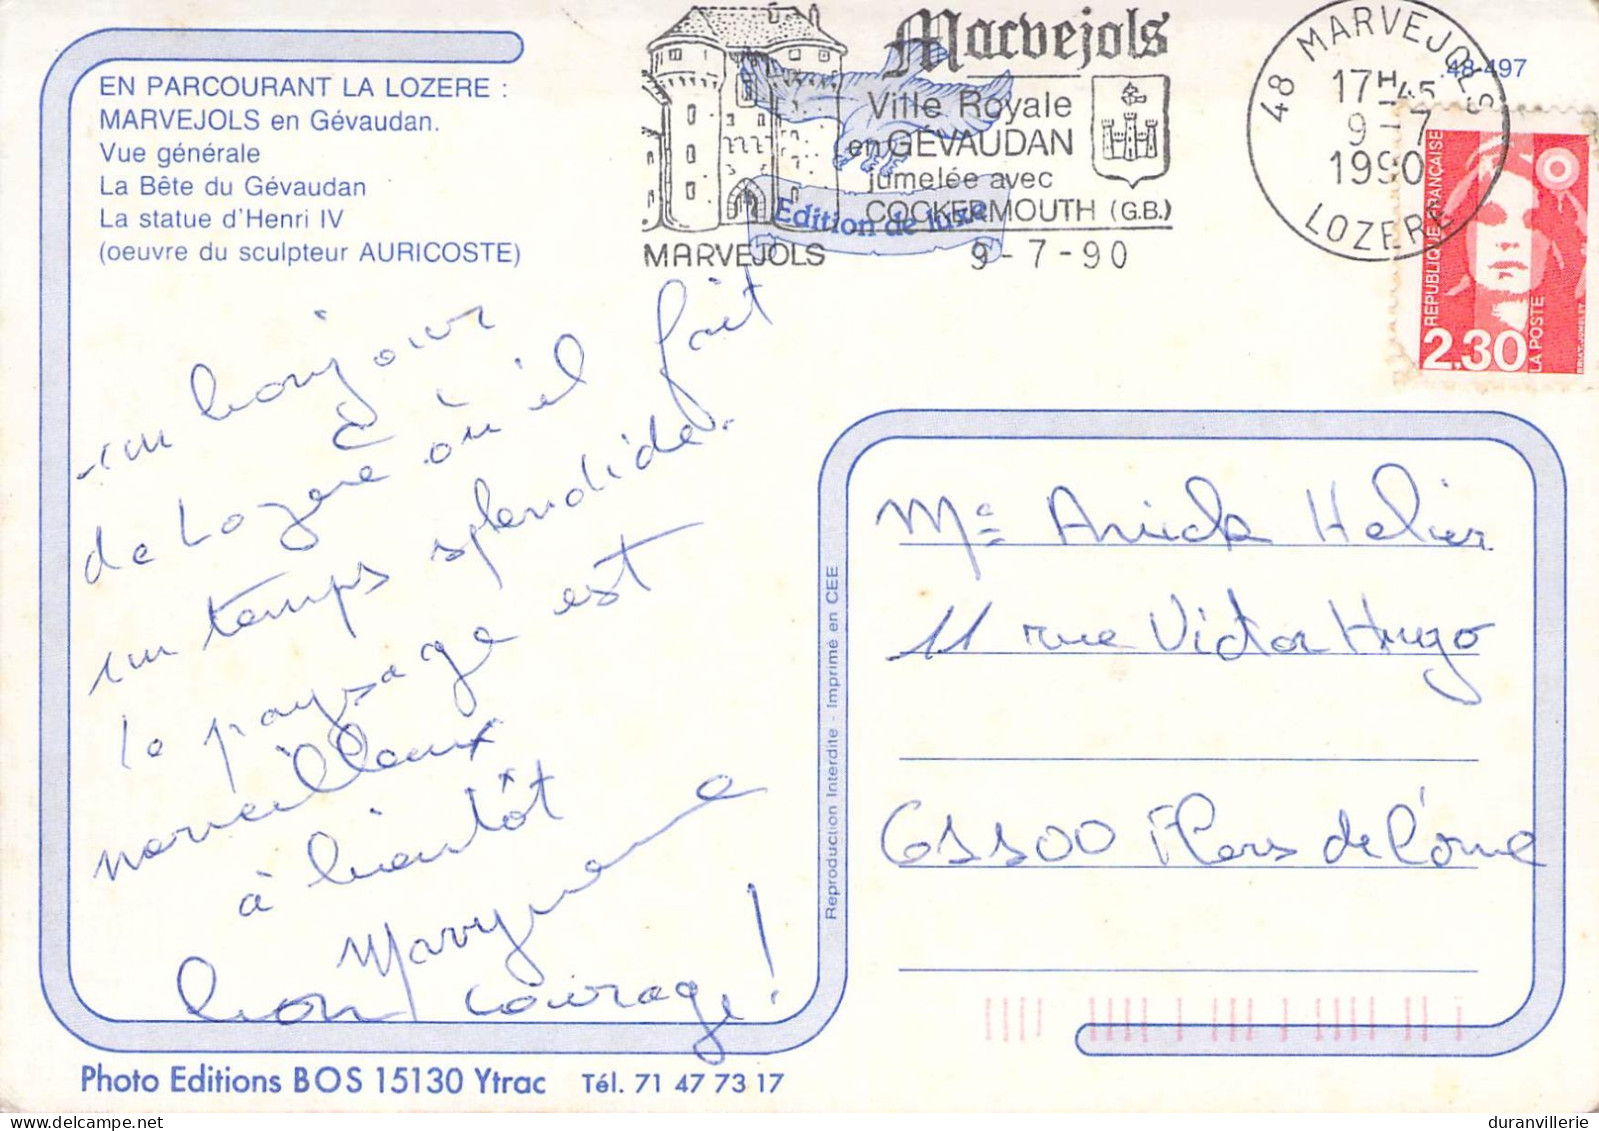 EN PARCOURANT LA LOZERE :
MARVEJOLS en Gévaudan.
Vue générale
La Bête du Gévaudan
La statue d'Henri IV
(oeuvre du sculpteur AURICOSTE)
MARVEJOLS
Marvejols
Ville Royale
en GÉVAUDAN
jumelée avec
COCKERMOUTH (G.B.)
9-7-90
Edition de luxe
48 MARVEJOLS
17H45
9-7
1990
LOZERE
48-497
REPUBLIQUE FRANÇAISE
2,30
LA POSTE
un bonjour
de Lozère où il fait
un temps splendide.
le paysage est
merveilleux
à bientôt
bon courage!
Reproduction Interdite - Imprimé en CEE
Me Anick Helier
11 rue Victor Hugo
61100 Flers de l'Orne
Photo Editions BOS 15130 Ytrac Tél. 71 47 73 17
duranvillerie